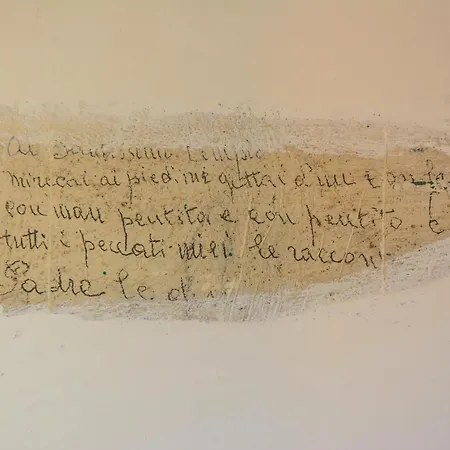 Al Santissimo tempio
mirecai ai piedi mi gettai d'un
con man pentita e con pentito
tutti i peccati miei le raccon
Padre le d